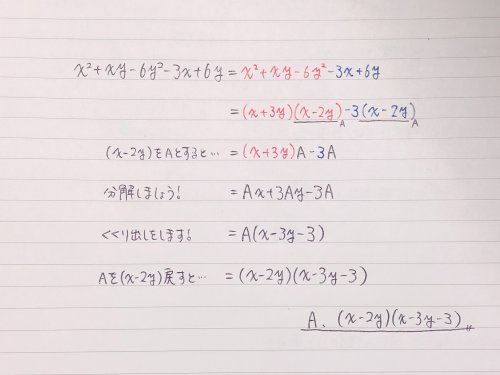 x²+xy-6y²-3x+6y = x²+xy-6y²-3x+6y
= (x+3y)(x-2y)-3(x-2y)
A A
(x-2y)をAとすると… = (x+3y)A-3A
分解しましょう! = Ax+3Ay-3A
くくり出しをします! = A(x-3y-3)
Aを(x-2y)戻すと… = (x-2y)(x-3y-3)
A. (x-2y)(x-3y-3)